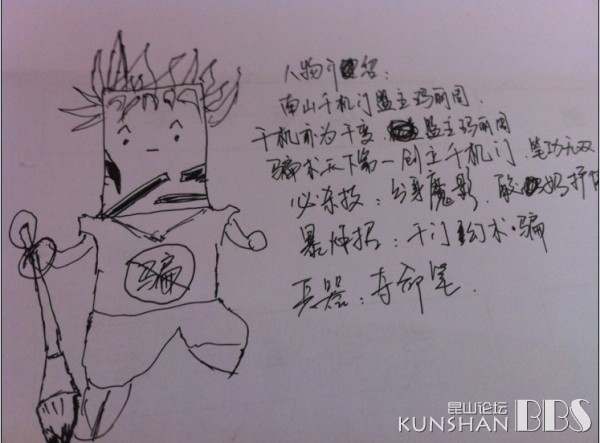 人物介绍:
南山千机门盟主玛丽周.
千机亦为千变 盟主玛丽周
骗术天下第一 创立千机门. 笔功无双
必杀技: 分身魔影.
暴炸招: 千门幻术·骗
兵器: 夺命笔.
骗
昆山论坛
KUNSHAN BBS